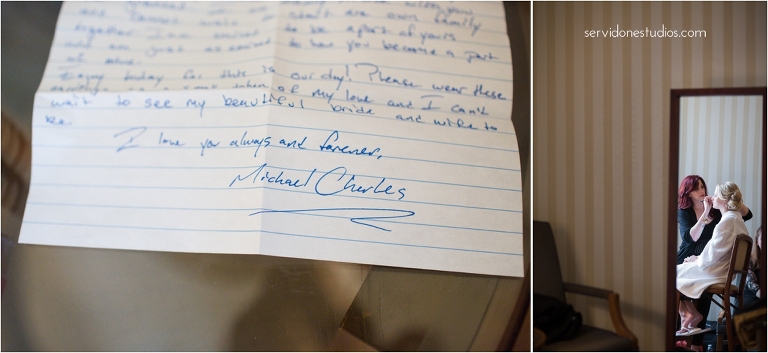 start our own family
together I am excited to be apart of yours
and am just as excited to have you become a part
of mine.
Enjoy today for this is our day! Please wear these
as a token of my love and I can't
wait to see my beautiful bride and wife to
be.
I love you always and forever,
Michael Charles
servidonestudios.com